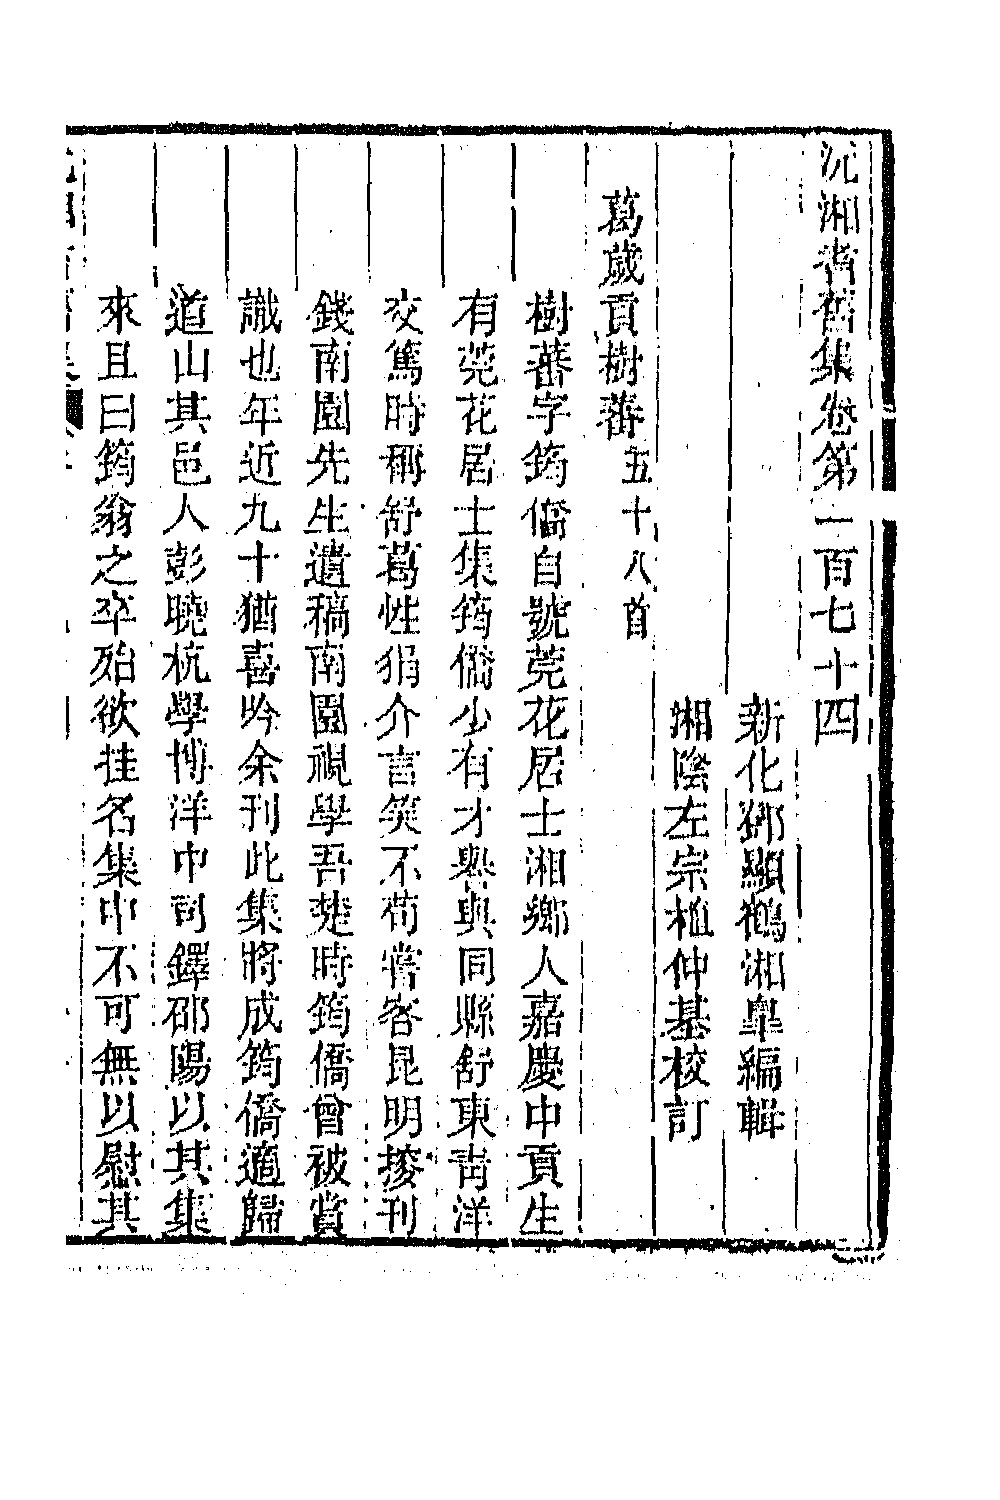 沅湘耆舊集卷第一百七十四
新化鄧顯鶴湘皋編輯
湘陰左宗植仲基校訂
葛歲貢樹蕃五十八首
樹蕃字筠僑自號莞花居士湘鄉人嘉慶中貢生
有莞花居士集筠僑少有才譽與同縣舒東皐洋
交篤時稱舒葛性狷介言笑不苟嘗客昆明搂刊
錢南園先生遺稿南園視學吾楚時筠僑曾被賞
識也年近九十猶喜吟余刊此集將成筠僑適歸
道山其邑人彭曉杭學博洋中司鐸邵陽以其集
來且曰筠翁之卒殆欲挂名集中不可無以慰其